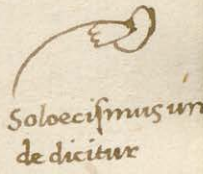 Soloeciſmus un
de dicitur